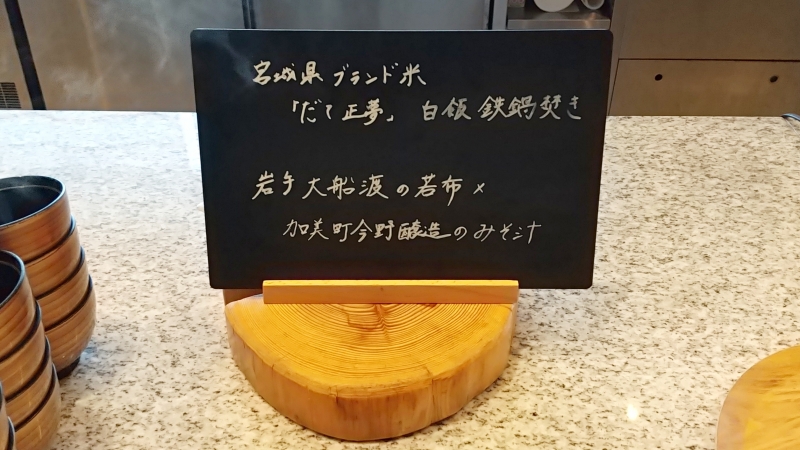 宮城県 ブランド米
「だて正夢」 白飯 鉄鍋焚き
岩手 大船渡の若布×
加美町今野醸造のみそ汁